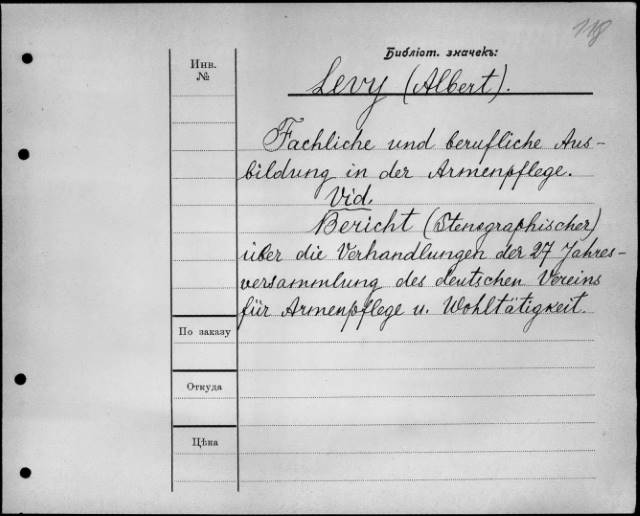 118
Библіот. значекъ:
Инв.
№
Levy (Albert).
Fachliche und berufliche Aus-
bildung in der Armenpflege.
Vid.
Bericht (Stenographischer)
über die Verhandlungen der 27 Jahres-
versammlung des deutschen Vereins
für Armenpflege u. Wohltätigkeit.
По заказу
Откуда
Цѣна